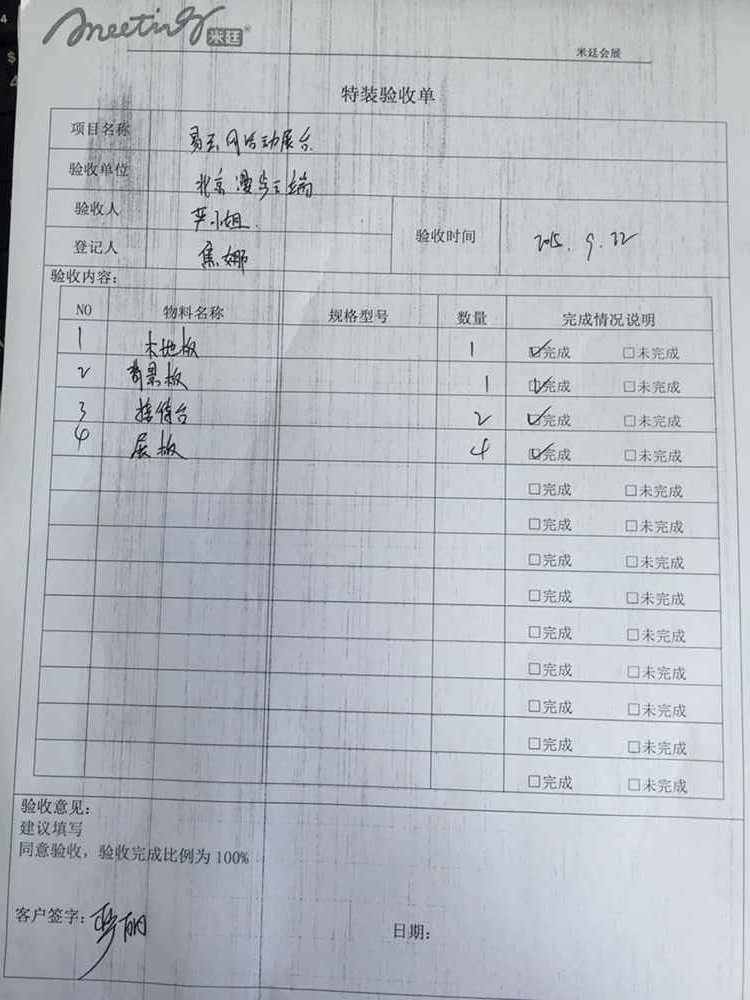 meeting 米廷®
米廷会展
特装验收单
项目名称 易车网活动展台
验收单位 北京漫步云端
验收人 严小姐
登记人 焦娜
验收时间 2015.9.22
验收内容:
NO 物料名称 规格型号 数量 完成情况说明
1 木地板 1 ☑完成 □未完成
2 背景板 1 ☑完成 □未完成
3 接待台 2 ☑完成 □未完成
4 层板 4 ☑完成 □未完成
□完成 □未完成
□完成 □未完成
□完成 □未完成
□完成 □未完成
□完成 □未完成
□完成 □未完成
□完成 □未完成
□完成 □未完成
□完成 □未完成
验收意见:
建议填写
同意验收，验收完成比例为 100%
客户签字: 日期: